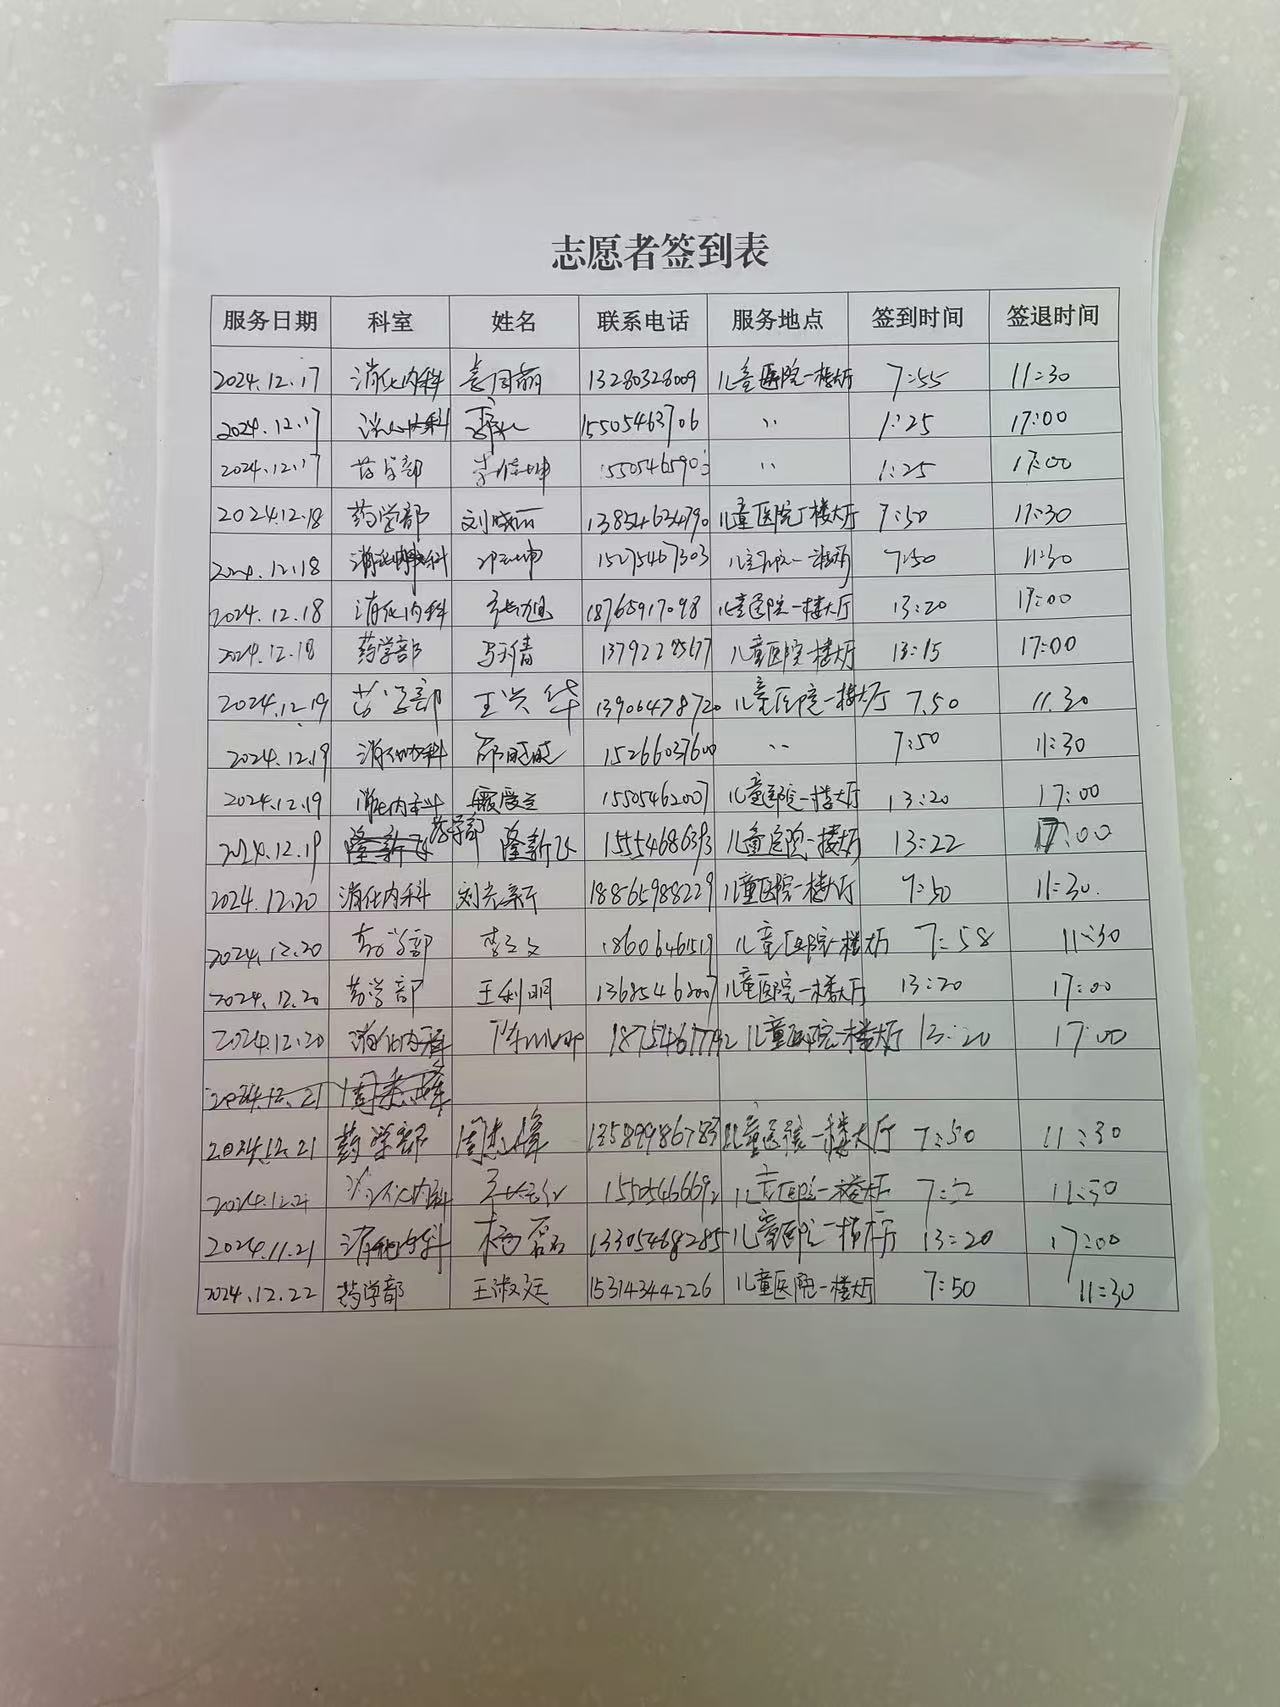 志愿者签到表
服务日期 科室 姓名 联系电话 服务地点 签到时间 签退时间
2024.12.17 消化内科 13280328009 儿童医院一楼大厅 7:55 11:30
2024.12.17 消化内科 15505463706 〃 1:25 17:00
2024.12.17 药学部 〃 1:25 17:00
2024.12.18 药学部 刘晓丽 13854634790 儿童医院一楼大厅 7:50 11:30
2024.12.18 消化内科 15275467303 儿童医院一楼大厅 7:50 11:30
2024.12.18 消化内科 张旭 18765917098 儿童医院一楼大厅 13:20 17:00
2024.12.18 药学部 马倩 儿童医院一楼大厅 13:15 17:00
2024.12.19 药学部 王兴华 13906478720 儿童医院一楼大厅 7.50 11.30
2024.12.19 消化内科 15266037600 〃 7:50 11:30
2024.12.19 消化内科 15505462007 儿童医院一楼大厅 13:20 17:00
2024.12.19 药学部 隆新飞 15554686393 儿童医院一楼大厅 13:22 17:00
2024.12.20 消化内科 刘光新 18865988229 儿童医院一楼大厅 7:50 11:30.
2024.12.20 药学部 李文文 18606461519 儿童医院一楼大厅 7:58 11:30
2024.12.20 药学部 王利明 13685462007 儿童医院一楼大厅 13:20 17:00
2024.12.20 消化内科 18754677792 儿童医院一楼大厅 13:20 17:00
2024.12.21
2024.12.21 药学部 周杰峰 13589986783 儿童医院一楼大厅 7:50 11:30
消化内科 15505466692 儿童医院一楼大厅 11:30
2024.11.21 消化内科 杨磊 13305468285 儿童医院一楼大厅 13:20 17:00
2024.12.22 药学部 王淑廷 15314344226 儿童医院一楼大厅 7:50 11:30